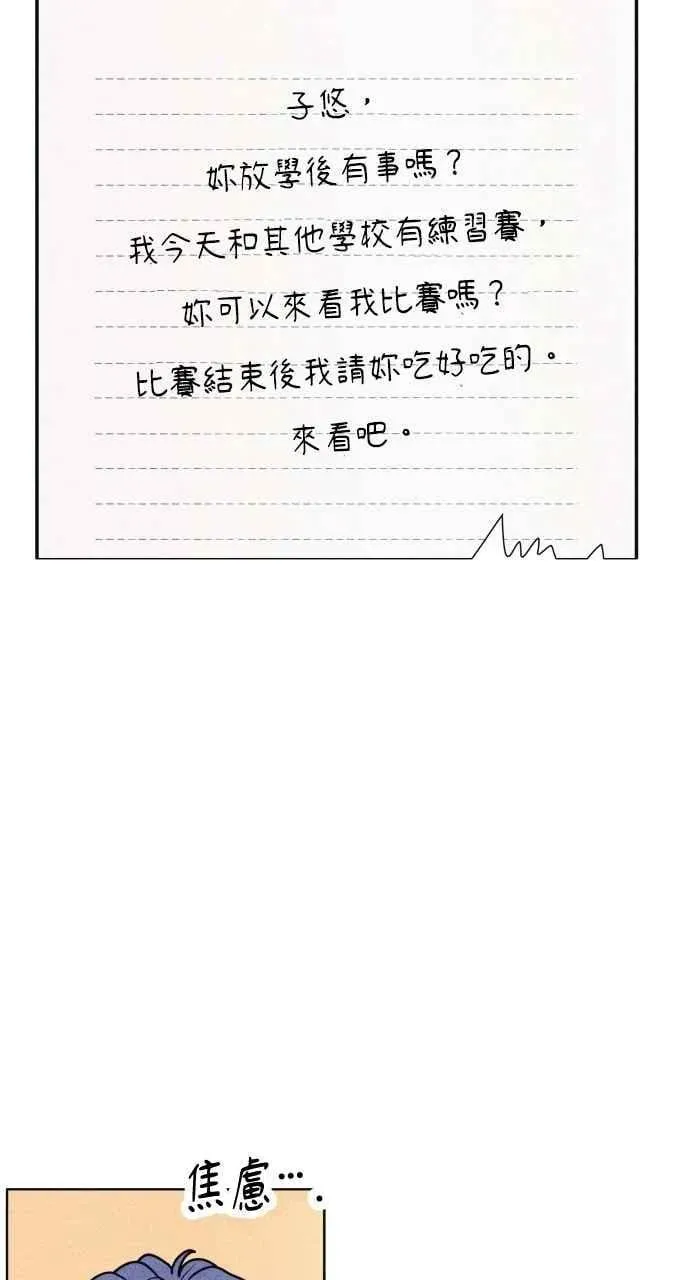 子悠，
妳放學後有事嗎？
我今天和其他學校有練習賽，
妳可以來看我比賽嗎？
比賽結束後我請妳吃好吃的。
來看吧。
焦慮⋯.